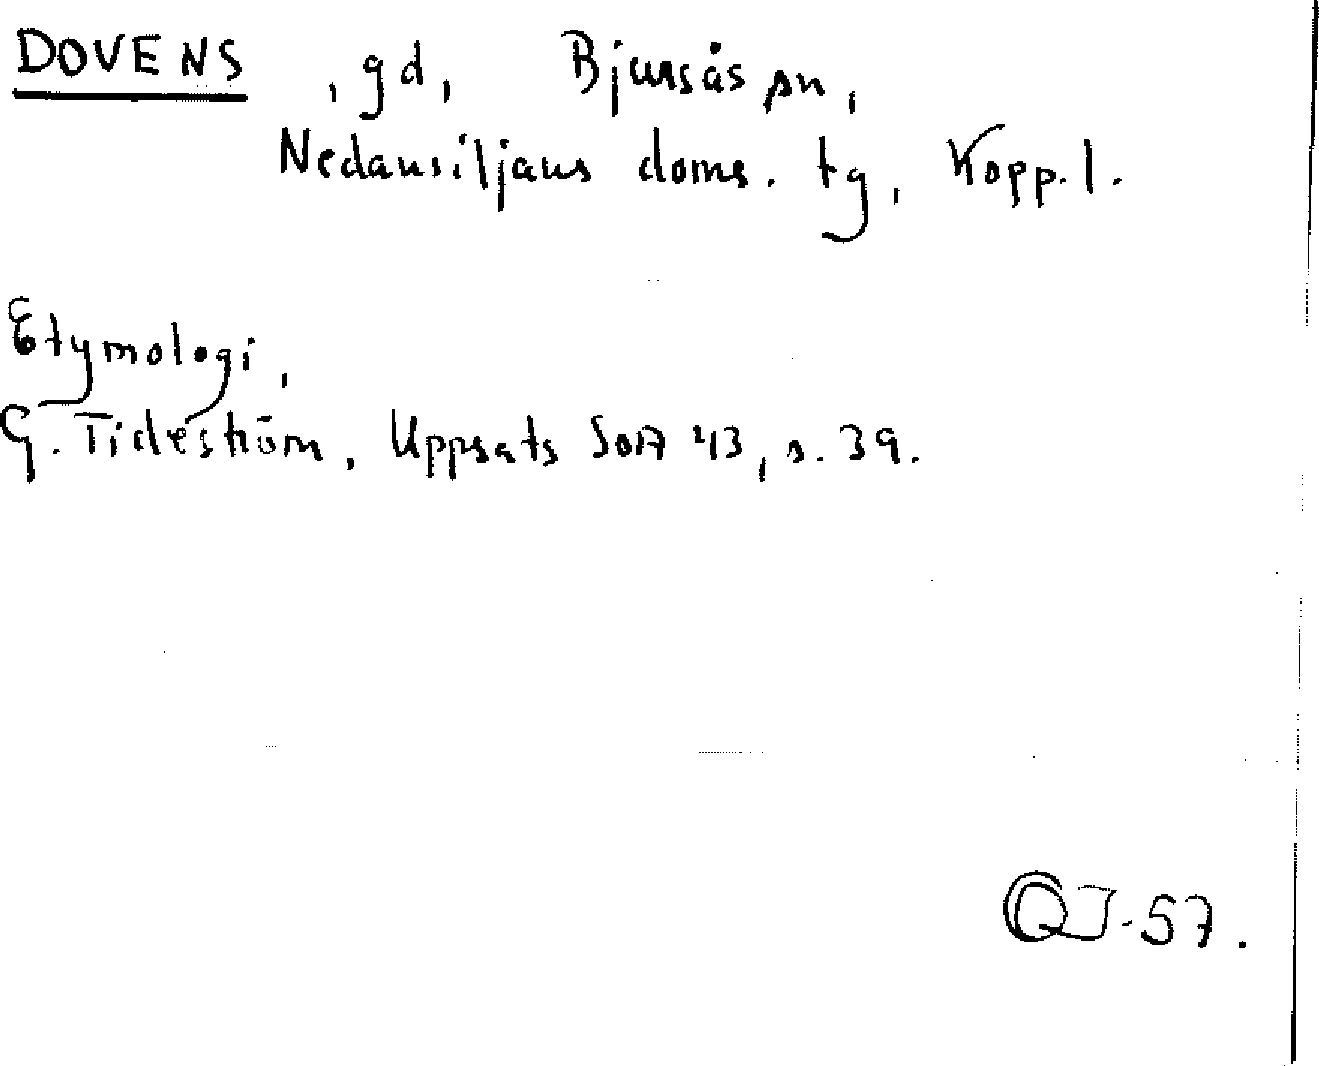 DOVENS , gd, Bjursås sn,
Nedansiljans doms. tg, Kopp. l.
Etymologi,
G. Tideström, Uppsats SOA 43, s. 39.
OJ-57.